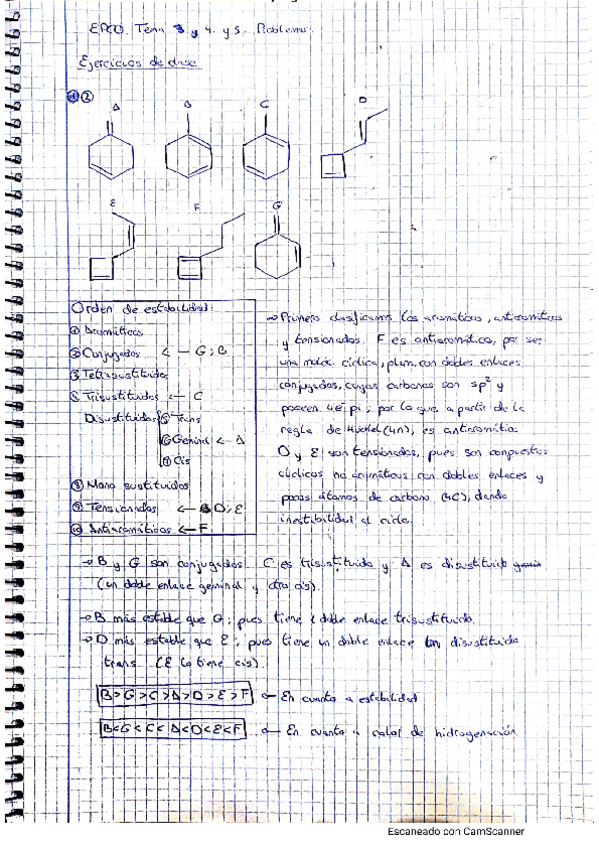 EPCO. Tema 3 y 4. y 5. Problemas.
Ejercicios de clase
②
A B C D
E F G
Orden de estabilidad:
① Aromáticos
② Conjugados ← G; B
③ Tetrasustituidos
Trisustituidos ← C
Disustituidos ⑤ Trans
⑥ Geminal ← A
⑦ Cis
⑧ Mono sustituidos
⑨ Tensionados ← D; E
⑩ Antiaromáticos ← F
→ Primero clasificamos los aromáticos, antiaromáticos
y tensionados. F es antiaromático, por ser
una moléc. cíclica, plana, con dobles enlaces
conjugados, cuyos carbonos son sp² y
poseen 4e⁻ pi; por lo que, a partir de la
regla de Hückel (4n), es antiaromático.
D y E son tensionados, pues son compuestos
cíclicos no aromáticos con dobles enlaces y
pocos átomos de carbono (4C), dando
inestabilidad al ciclo.
→ B y G son conjugados. C es trisustituido y A es disustituido
(un doble enlace geminal y otro cis).
→ B más estable que G; pues tiene 1 doble enlace trisustituido.
→ D más estable que E; pues tiene un doble enlace disustituido
trans. (E lo tiene cis)
B>G>C>A>D>E>F ← En cuanto a estabilidad
B<G<C<A<D<E<F ← En cuanto a calor de hidrogenación
Escaneado con CamScanner